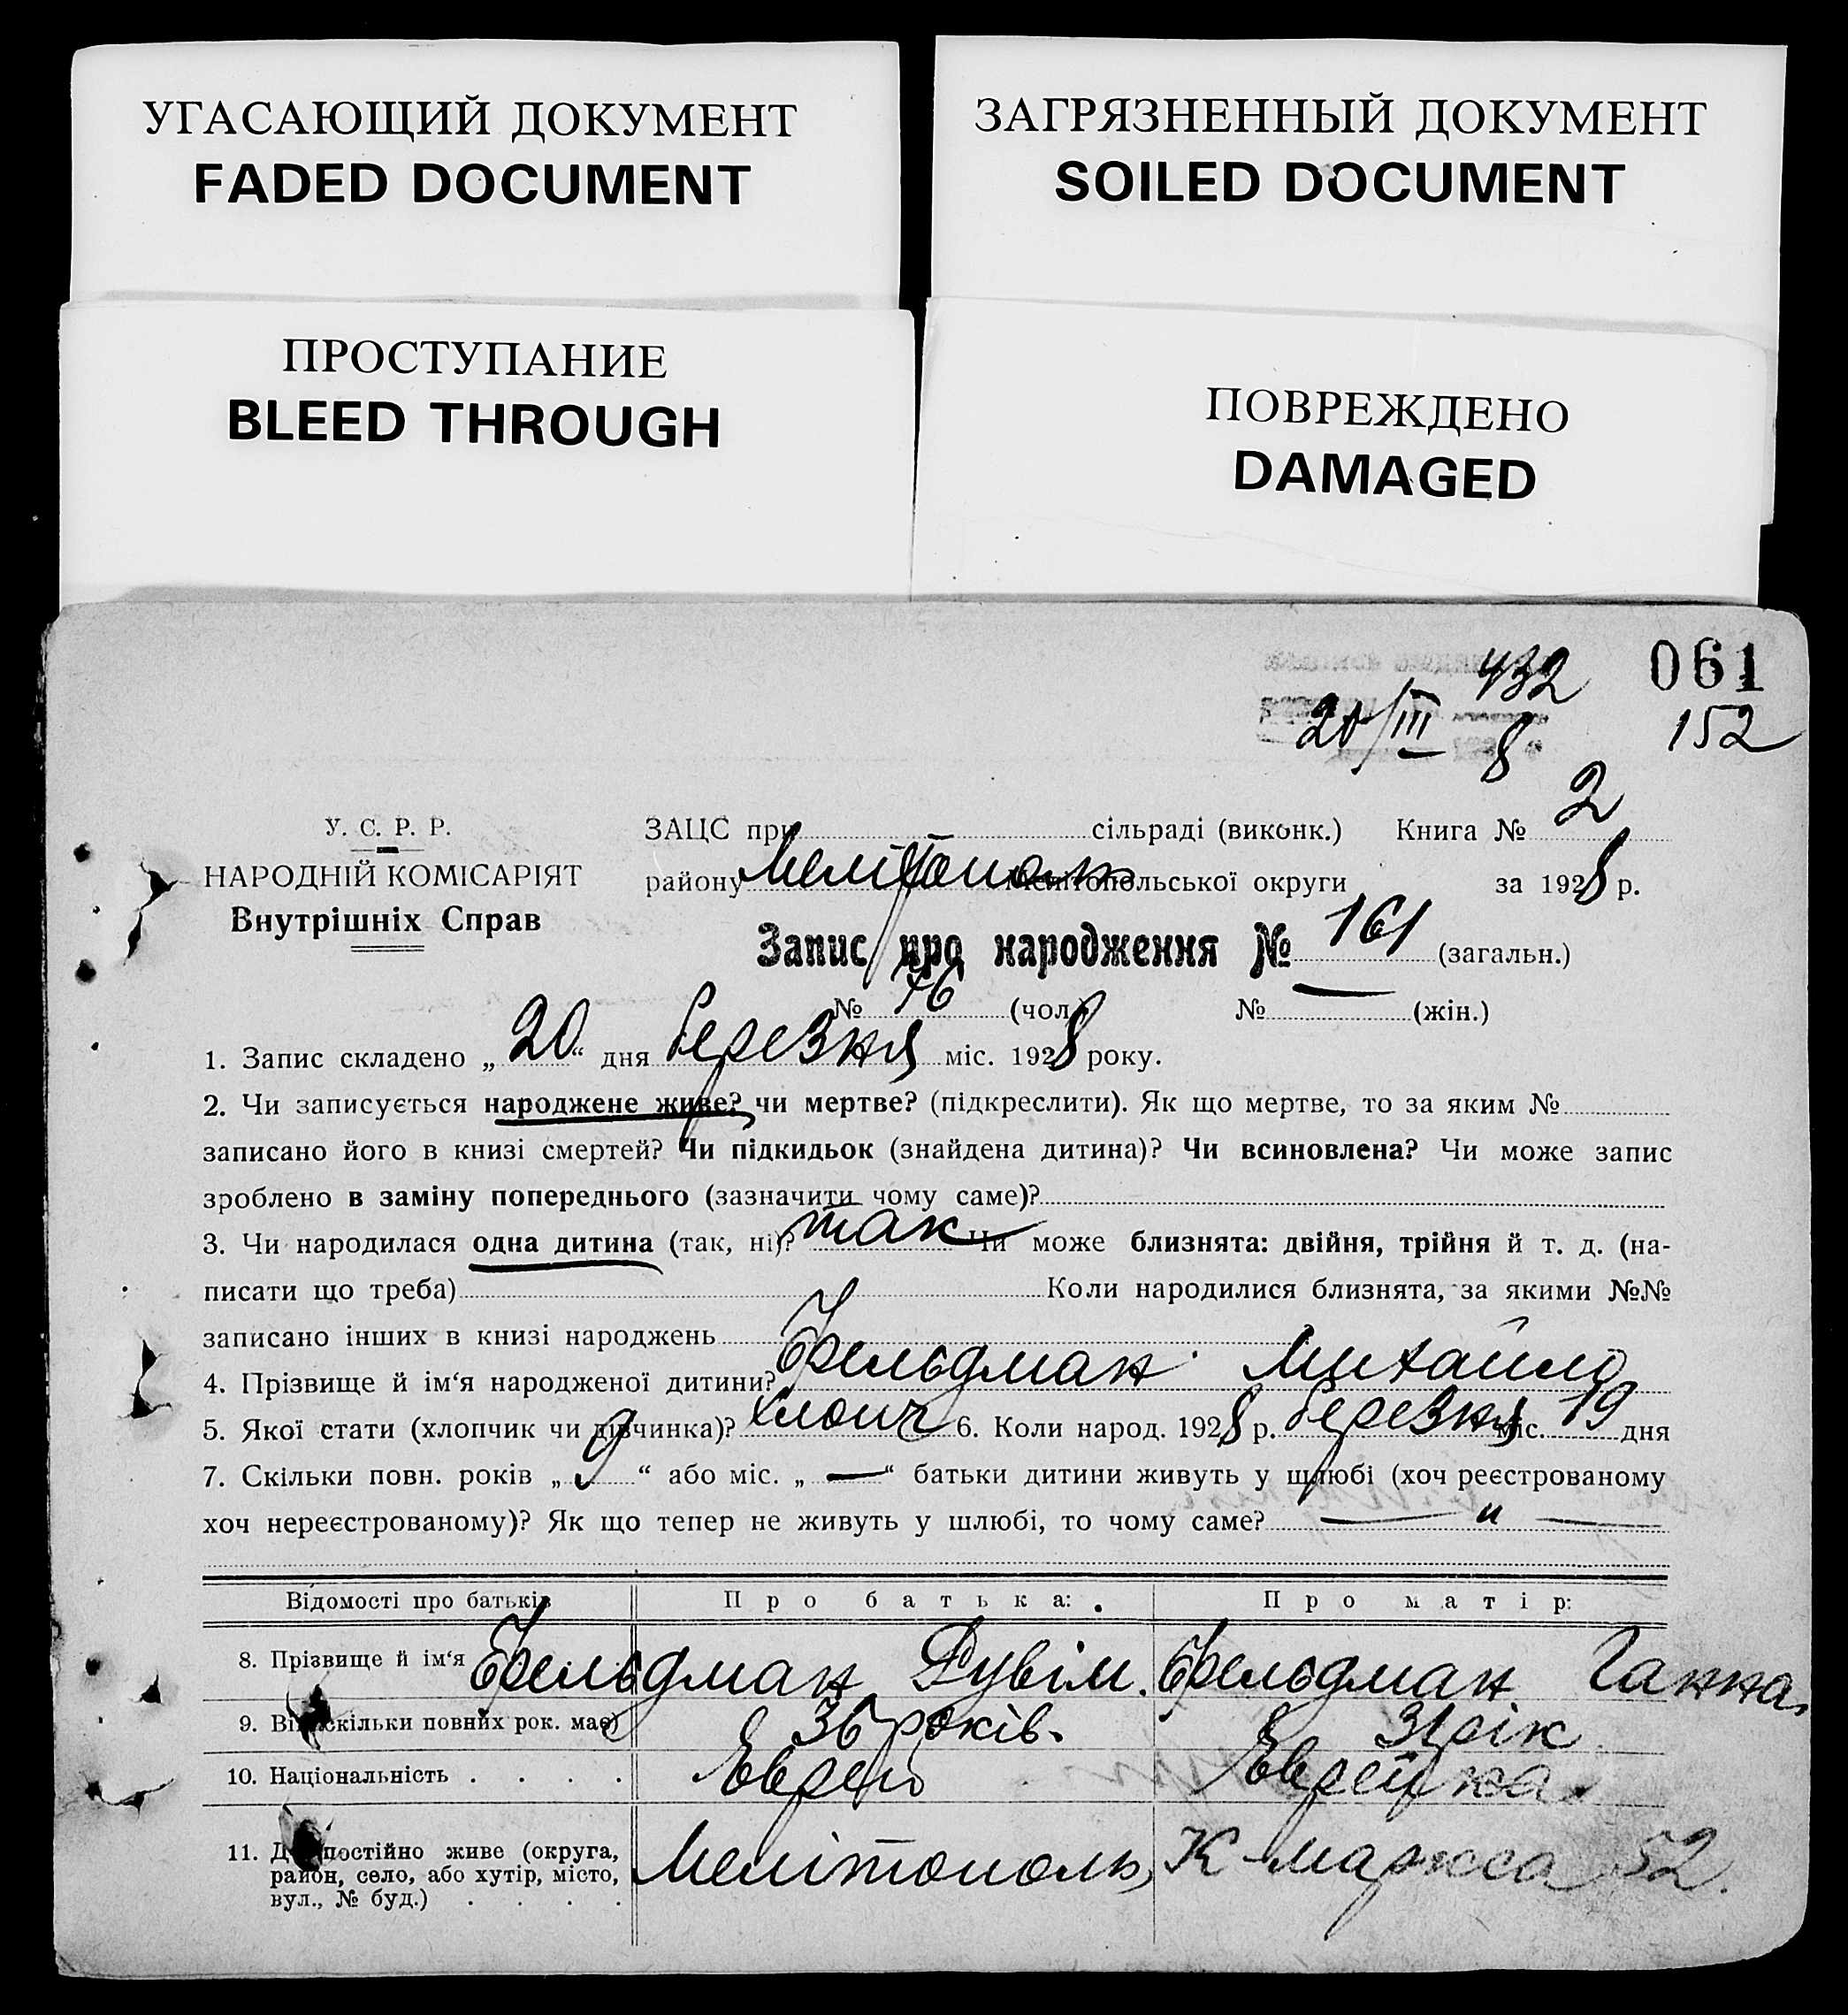 УГАСАЮЩИЙ ДОКУМЕНТ
FADED DOCUMENT
ЗАГРЯЗНЕННЫЙ ДОКУМЕНТ
SOILED DOCUMENT
ПРОСТУПАНИЕ
BLEED THROUGH
ПОВРЕЖДЕНО
DAMAGED
432 061
20/III 8 152
У. С. Р. Р.
НАРОДНІЙ КОМІСАРІЯТ
Внутрішніх Справ
ЗАЦС при сільраді (виконк.) Книга № 2
району Мелітополь Мелітопольської округи за 1928 р.
Запис про народження № 161 (загальн.)
№ 76 (чол.) № — (жін.)
1. Запис складено „20“ дня березня міс. 1928 року.
2. Чи записується народжене живе? чи мертве? (підкреслити). Як що мертве, то за яким №
записано його в книзі смертей? Чи підкидьок (знайдена дитина)? Чи всиновлена? Чи може запис
зроблено в заміну попереднього (зазначити чому саме)?
3. Чи народилася одна дитина (так, ні)? так Чи може близнята: двійня, трійня й т. д. (на-
писати що треба) Коли народилися близнята, за якими №№
записано інших в книзі народжень
4. Прізвище й ім‘я народженої дитини? Фельдман Михайло
5. Якої стати (хлопчик чи дівчинка)? хлопч 6. Коли народ. 1928 р. березня міс. 19 дня
7. Скільки повн. років „9“ або міс. „—“ батьки дитини живуть у шлюбі (хоч реєстрованому
хоч нереєстрованому)? Як що тепер не живуть у шлюбі, то чому саме? — „ —
Відомості про батьків Про батька: Про матір:
8. Прізвище й ім‘я Фельдман Рувім. Фельдман Ганна.
9. Вік (скільки повних рок. має) 36 років. 31 рік
10. Національність . . . . Еврей Еврейка.
11. Де постійно живе (округа,
район, село, або хутір, місто,
вул., № буд.) . . . . Мелітополь, К-Маркса 52.